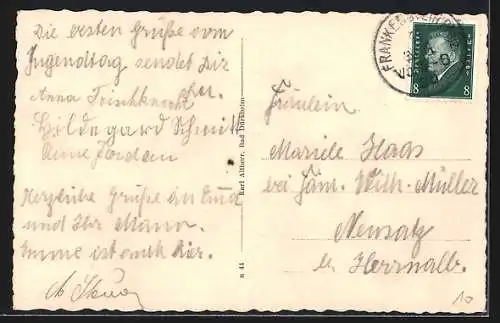 Die ersten Grüße vom
Jugendtag sendet Dir
Anna Trischknecht
Hildegard Schmitt
Anne Jordan
Herzliche Grüße an Emil
und Ihr Mann.
Emme ist auch hier.
Karl Altherr, Bad Dürkheim
n 44
FRANKENSTEIN
8 8
Fräulein
Mariele Haas
bei Fam. Wilh. Müller
Neusatz
b. Herrnalb.
10